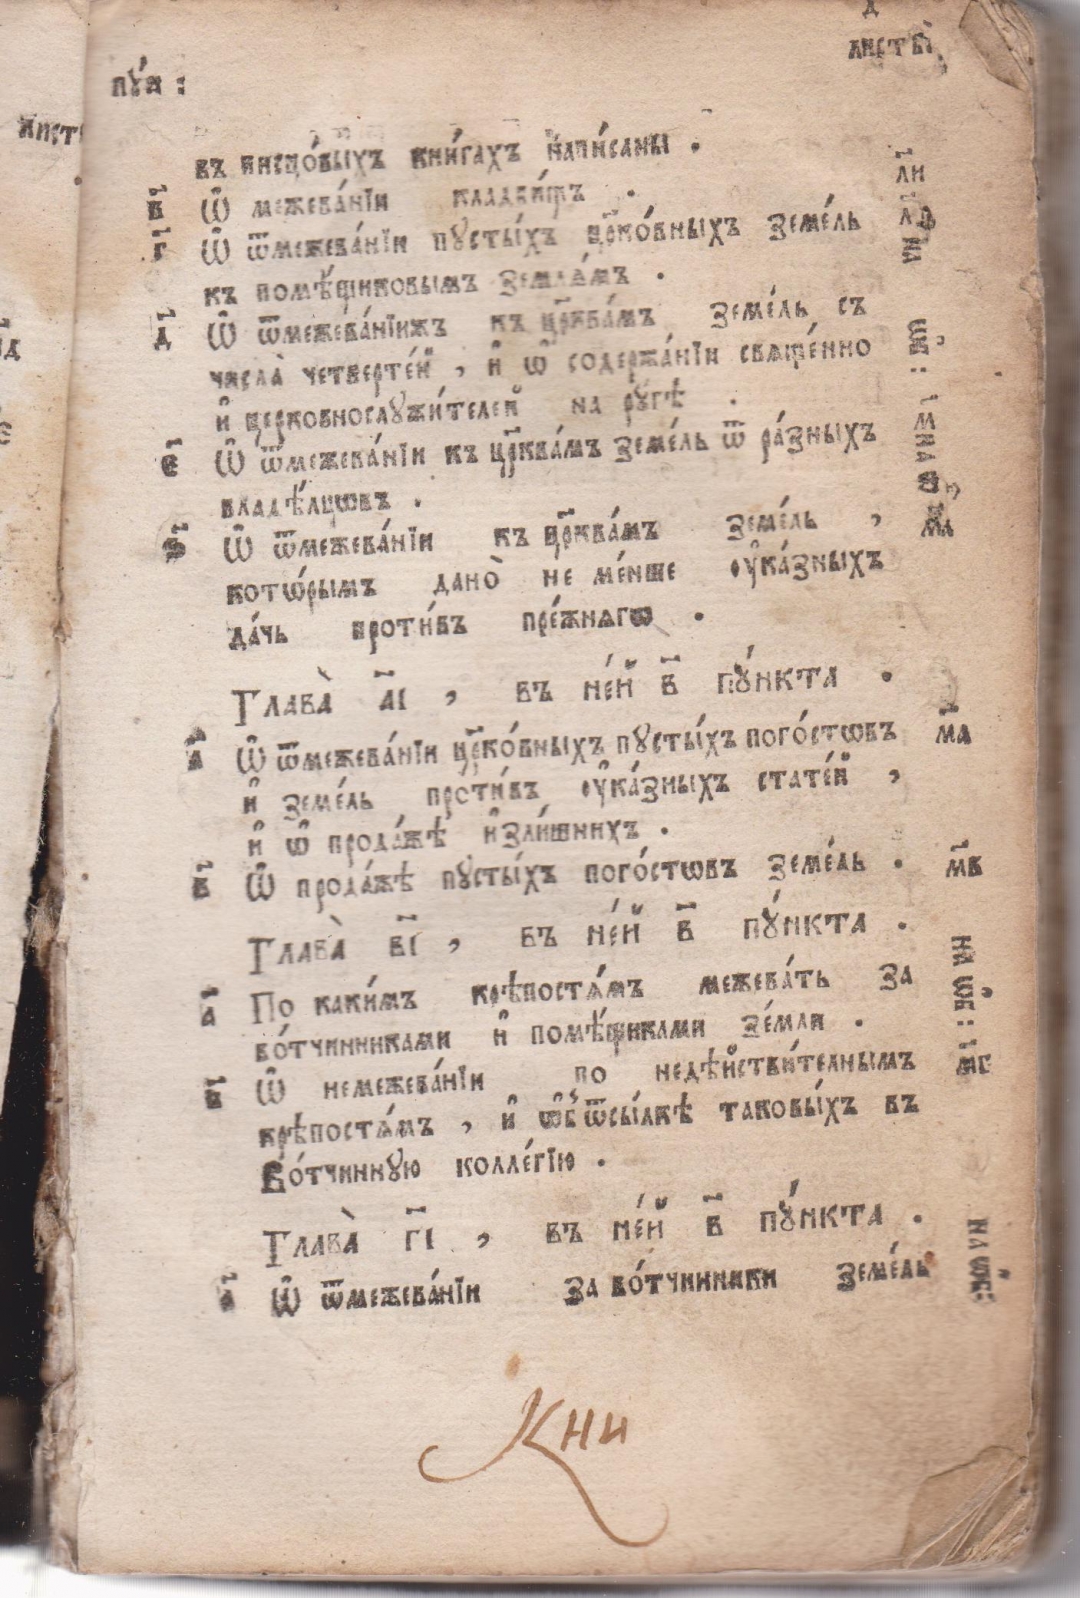 д
листы
пꙋ́н :
лист
въ писцо́выхъ кни́гахъ напи́саны .
в҃ Ѽ межева́нїи кладби́щъ . л҃и
г҃ Ѽ ѿмежева́нїи пꙋсты́хъ цр҃ко́вныхъ земе́ль на
къ помѣ́щиковымъ землѧ́мъ .
д҃ Ѽ ѿмежева́нїижъ къ цр҃ква́мъ земе́ль съ
числа̀ четверте́й , и҆ ѡ҆ содержа́нїи свѧще́нно
и҆ церковнослꙋжи́телей на рꙋ́гѣ .
е҃ Ѽ ѿмежева́нїи къ цр҃ква́мъ земе́ль ѿ ра́зныхъ
владѣ́лцовъ .
ѕ҃ Ѽ ѿмежева́нїи къ цр҃ква́мъ земе́ль ,
котѡ́рымъ дано̀ не ме́нше ᲂу҆ка́зныхъ
да́чь проти́въ пре́жнѧгѡ .
Глава̀ а҃і , въ не́й в҃ пꙋ́нкта .
а҃ Ѽ ѿмежева́нїи цр҃ко́вныхъ пꙋсты́хъ пого́стовъ м҃а
и҆ земе́ль проти́въ ᲂу҆ка́зныхъ стате́й ,
и҆ ѡ҆ прода́жѣ и҆зли́шнихъ .
в҃ Ѽ прода́жѣ пꙋсты́хъ пого́стовъ земе́ль . м҃в
Глава̀ в҃і , въ не́й в҃ пꙋ́нкта .
а҃ По каки́мъ крѣпостѧ́мъ межева́ть за на ѡб :
во́тчинниками и҆ помѣ́щиками зе́мли .
в҃ Ѽ немежева́нїи по недѣ́йстви́телнымъ м҃г
крѣпостѧ́мъ , и҆ ѡ҆бъ ѿсы́лкѣ таковы́хъ въ
Во́тчиннꙋю колле́гїю .
Глава̀ г҃і , въ не́й в҃ пꙋ́нкта .
а҃ Ѽ ѿмежева́нїи за во́тчинники земе́ль на ѡб :
Кни